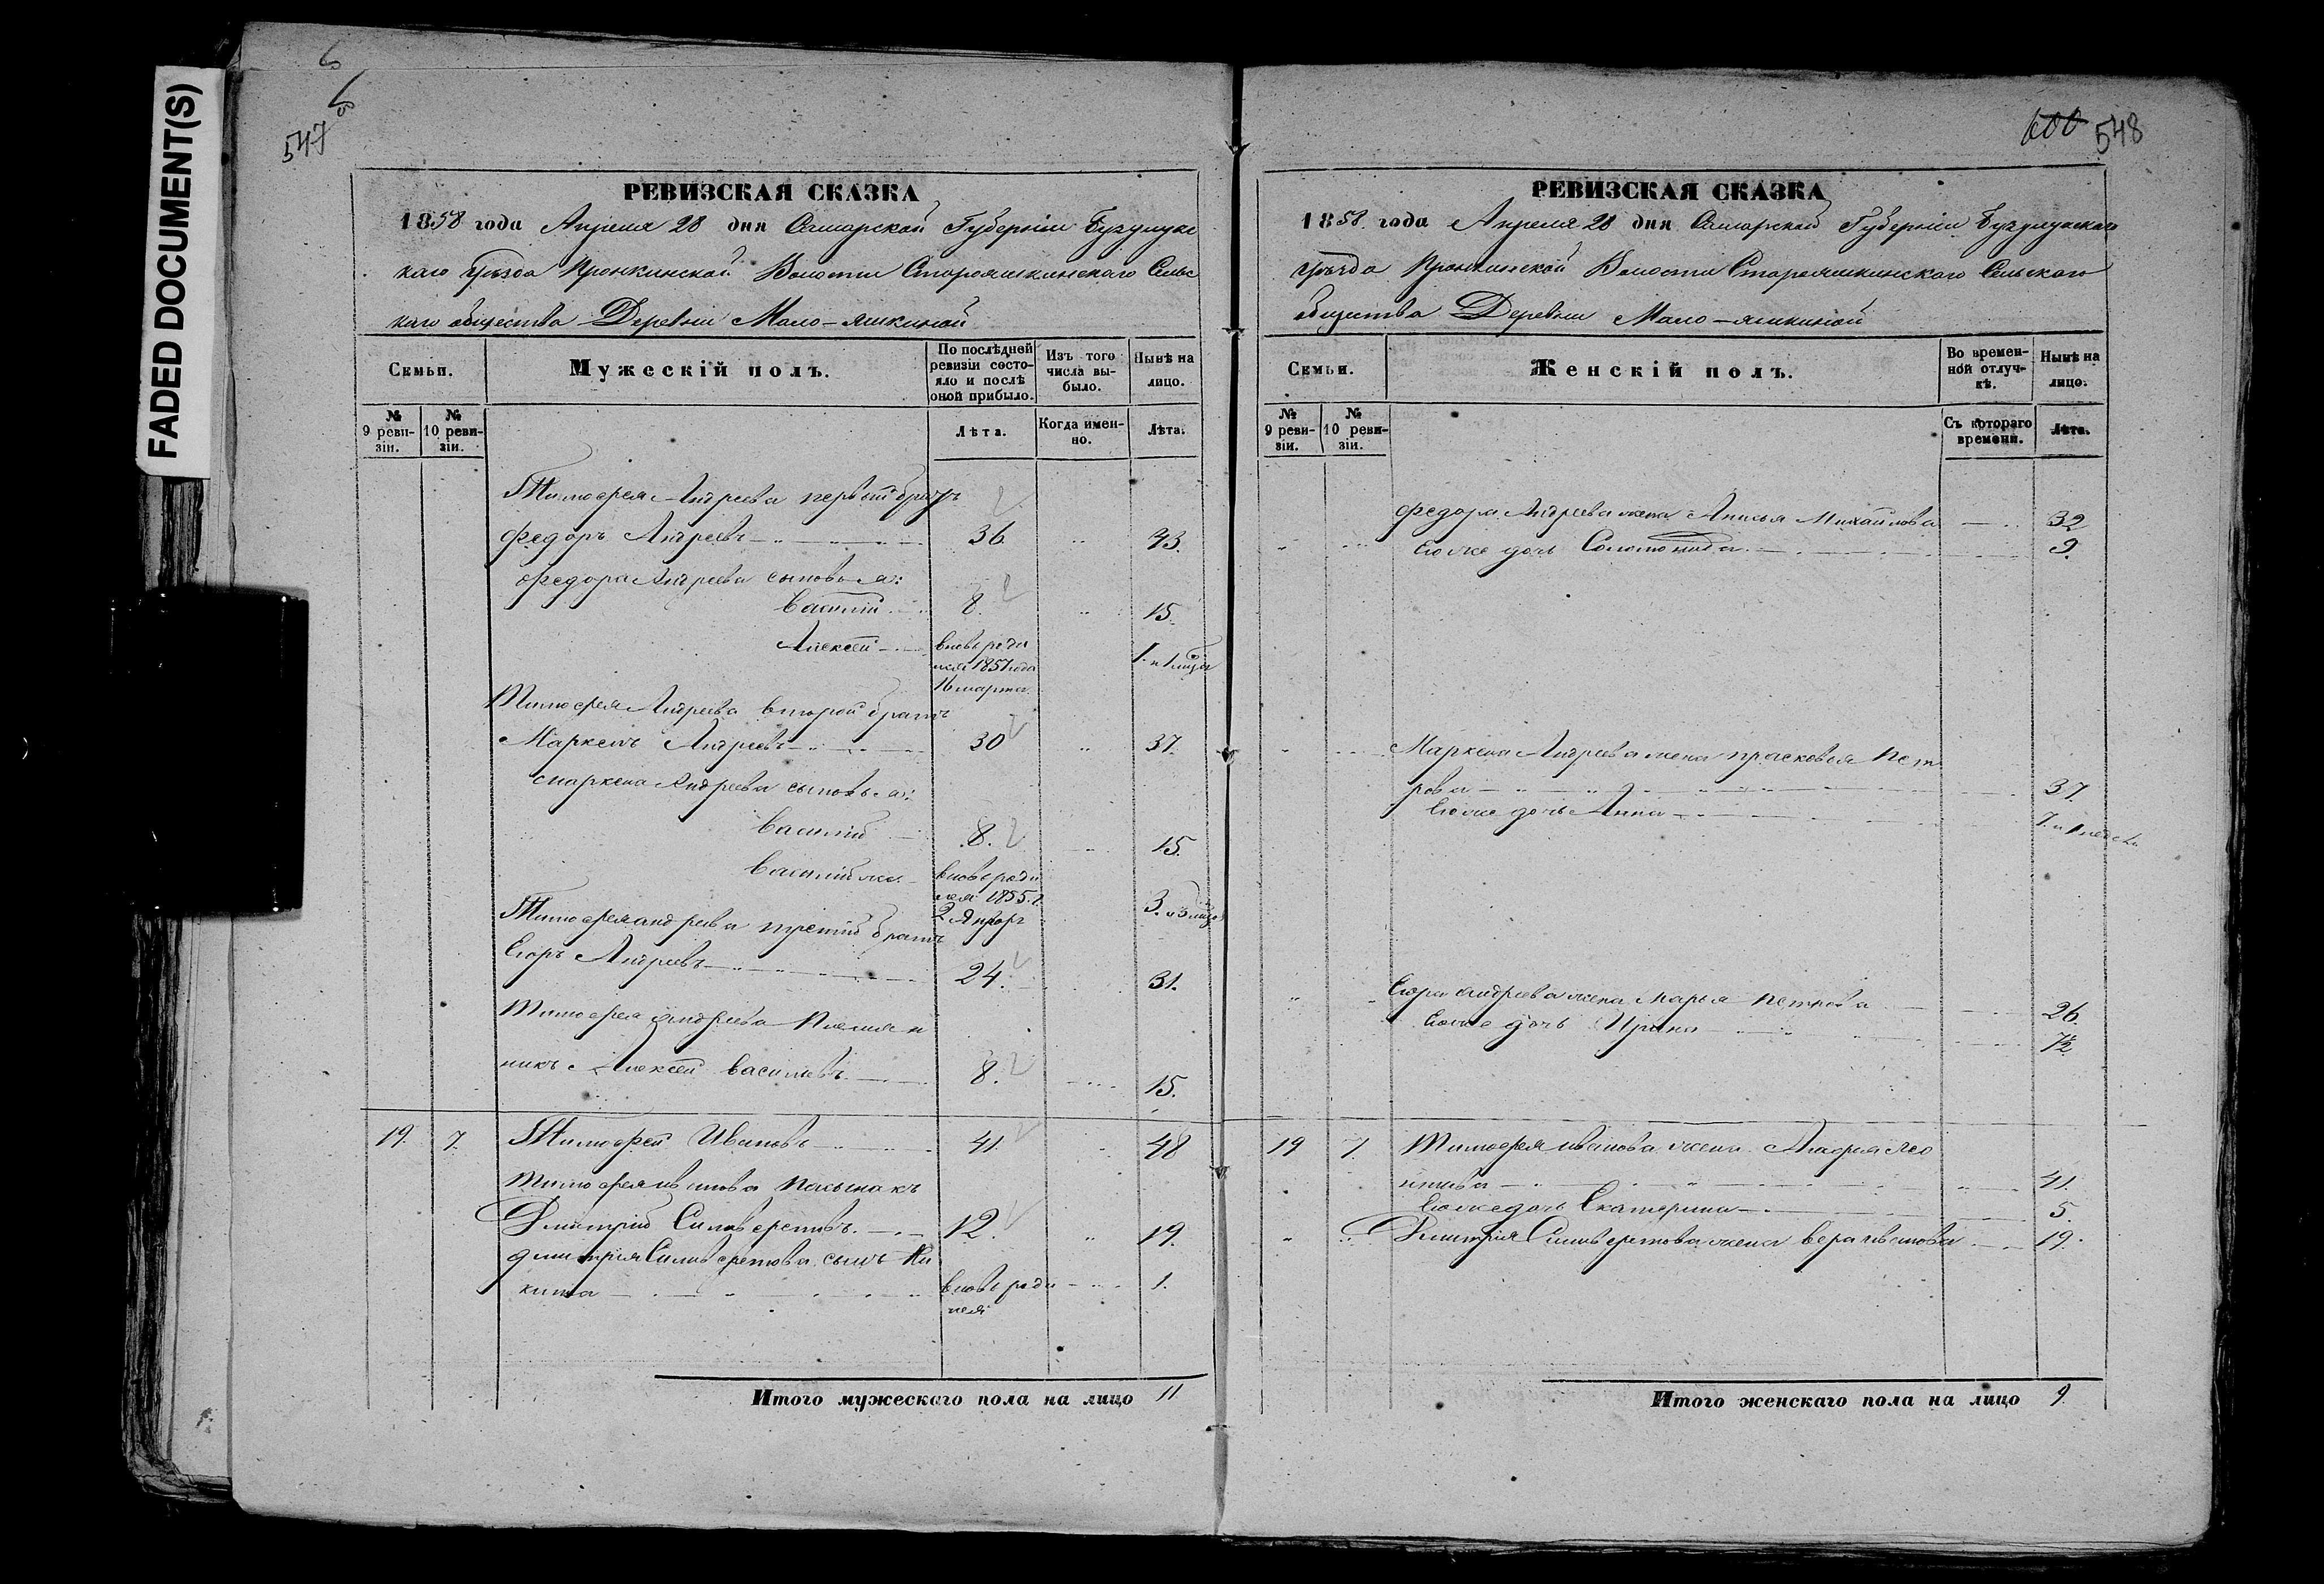 FADED DOCUMENT(S)
547
РЕВИЗСКАЯ СКАЗКА
1858 года Апреля 28 дня Самарской Губерніи Бузулукс
каго Уѣзда Пронкинской Волости Старояшкинскаго Сельс
каго общества Деревни Мало-яшкиной
Семьи.
Мужескій полъ.
По послѣдней ревизіи состояло и послѣ оной прибыло.
Изъ того числа выбыло.
Нынѣ на лицо.
№ 9 ревизіи.
№ 10 ревизіи.
Лѣта.
Когда именно.
Лѣта.
Тимофея Андреева первый братъ
Федоръ Андреевъ 36. 43.
Федора Андреева сыновья:
Василій 8. 15.
Алексей вновь роди 1. и 1 мцъ
лся 1857 года
16 марта
Тимофея Андреева второй братъ
Маркелъ Андреевъ 30 37.
Маркела Андреева сыновья:
Василій 8. 15.
Василій же вновь роди
лся 1855. г. 3. и 3 мцъ
2 Январ
Тимофея андреева третий братъ
Егоръ Андреевъ 24. 31.
Тимофея андреева Племян
никъ Алексей Васильевъ 8. 15.
19. 7. Тимофей Ивановъ 41. 48
Тимофея иванова пасынокъ
Дмитрий Сильверстовъ. 12. 19.
дмитрия Сильверстова сынъ Ни
кита вновь роди 1.
лся
Итого мужескаго пола на лицо 11
600 548
РЕВИЗСКАЯ СКАЗКА
1858. года Апреля 28 дня Самарской Губерніи Бузулукскаго
Уѣзда Пронкинской Волости Старояшкинскаго Сельскаго
общества Деревни Мало-яшкиной
Семьи.
Женскій полъ.
Во временной отлучкѣ.
Нынѣ на лицо.
№ 9 ревизіи.
№ 10 ревизіи.
Съ котораго времени.
Лѣта.
Федора Андреева жена Анисья Михайлова 32
Его же дочь Соломонида 9.
Маркела Андреева жена прасковья Пет
рова 37.
Его же дочь Анна
Егора андреева жена Марья Петрова 26.
Его же дочь Ирина ½
19 7. Тимофея иванова жена Агафья Лео
нтьева 41.
Его же дочь Екатерина 5.
Дмитрія Сильверстова жена вера иванова 19.
Итого женскаго пола на лицо 9.